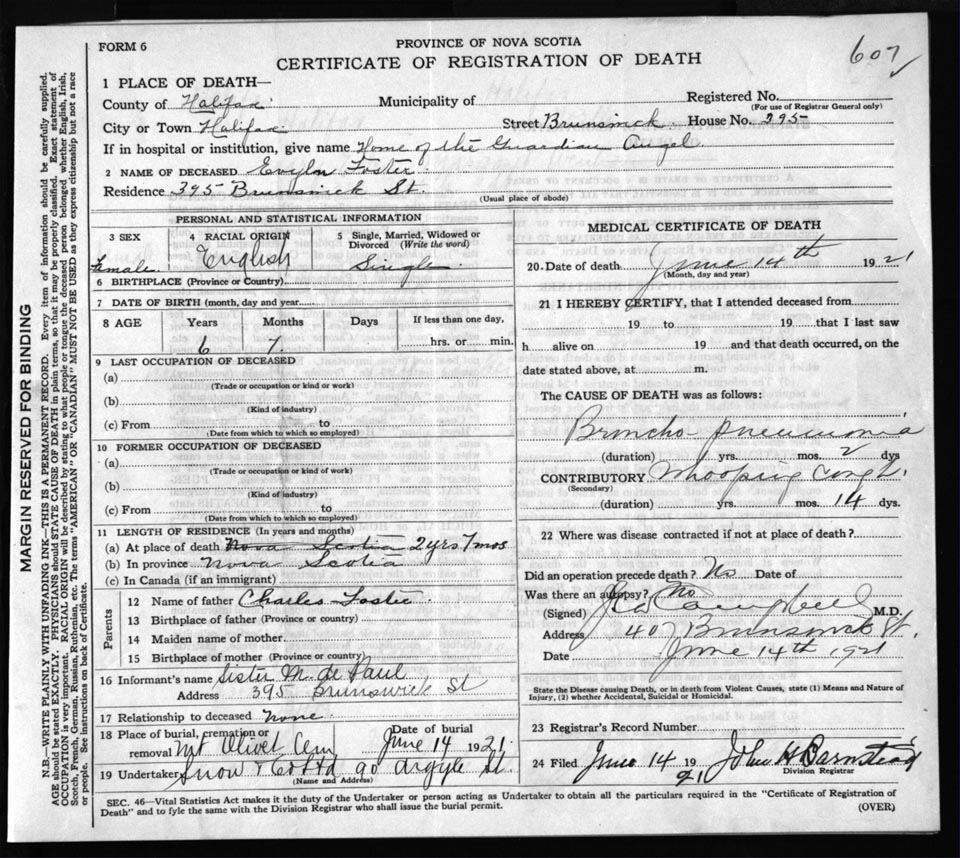 FORM 6
PROVINCE OF NOVA SCOTIA
CERTIFICATE OF REGISTRATION OF DEATH
607
1 PLACE OF DEATH—
County of Halifax Municipality of Registered No.
(For use of Registrar General only)
City or Town Halifax. Street Brunswick. House No. 295
If in hospital or institution, give name Home of the Guardian Angel.
2 NAME OF DECEASED Evylon Foster
Residence 395 Brunswick St.
(Usual place of abode)
PERSONAL AND STATISTICAL INFORMATION
3 SEX 4 RACIAL ORIGIN 5 Single, Married, Widowed or Divorced (Write the word)
Female. English Single.
6 BIRTHPLACE (Province or Country)
7 DATE OF BIRTH (month, day and year)
8 AGE Years Months Days If less than one day,
6 7 hrs. or min.
9 LAST OCCUPATION OF DECEASED
(a)
(Trade or occupation or kind or work)
(b)
(Kind of industry)
(c) From to
(Date from which to which so employed)
10 FORMER OCCUPATION OF DECEASED
(a)
(Trade or occupation or kind of work)
(b)
(Kind of industry)
(c) From to
(Date from which to which so employed)
11 LENGTH OF RESIDENCE (In years and months)
(a) At place of death Nova Scotia 2 yrs 7 mos
(b) In province Nova Scotia
(c) In Canada (if an immigrant)
Parents
12 Name of father Charles Foster.
13 Birthplace of father (Province or country)
14 Maiden name of mother
15 Birthplace of mother (Province or country)
16 Informant's name Sister M. de Paul
Address 395 Brunswick St
17 Relationship to deceased none.
18 Place of burial, cremation or removal Mt Olivet Cem Date of burial June 14 1921.
19 Undertaker Snow & Co Ltd 90 Argyle St.
(Name and Address)
MEDICAL CERTIFICATE OF DEATH
20 Date of death June 14th 1921
(Month, day and year)
21 I HEREBY CERTIFY, that I attended deceased from
19 to 19 that I last saw
h alive on 19 and that death occurred, on the
date stated above, at m.
The CAUSE OF DEATH was as follows:
Broncho pneumonia
(duration) yrs. mos. 2 dys
CONTRIBUTORY Whooping cough.
(Secondary)
(duration) yrs. mos. 14 dys.
22 Where was disease contracted if not at place of death?
Did an operation precede death? No Date of
Was there an autopsy? No
(Signed) Campbell M.D.
Address 407 Brunswick St.
Date June 14th 1921
State the Disease causing Death, or in death from Violent Causes, state (1) Means and Nature of
Injury, (2) whether Accidental, Suicidal or Homicidal.
23 Registrar's Record Number
24 Filed June 14 1921 John H Barnstead
Division Registrar
SEC. 46—Vital Statistics Act makes it the duty of the Undertaker or person acting as Undertaker to obtain all the particulars required in the "Certificate of Registration of
Death" and to fyle the same with the Division Registrar who shall issue the burial permit.
(OVER)
MARGIN RESERVED FOR BINDING
N.B.—WRITE PLAINLY WITH UNFADING INK—THIS IS A PERMANENT RECORD. Every item of information should be carefully supplied.
AGE should be stated EXACTLY. PHYSICIANS should STATE CAUSE OF DEATH in plain terms, so that it may be properly classified. Exact statement of
OCCUPATION is very important. RACIAL ORIGIN will be described by stating to what people or tongue the deceased person belonged, whether English, Irish,
Scotch, French, German, Russian, Ruthenian, etc. The terms "AMERICAN" OR "CANADIAN" MUST NOT BE USED as they express citizenship but not a race
or people. See instructions on back of Certificate.